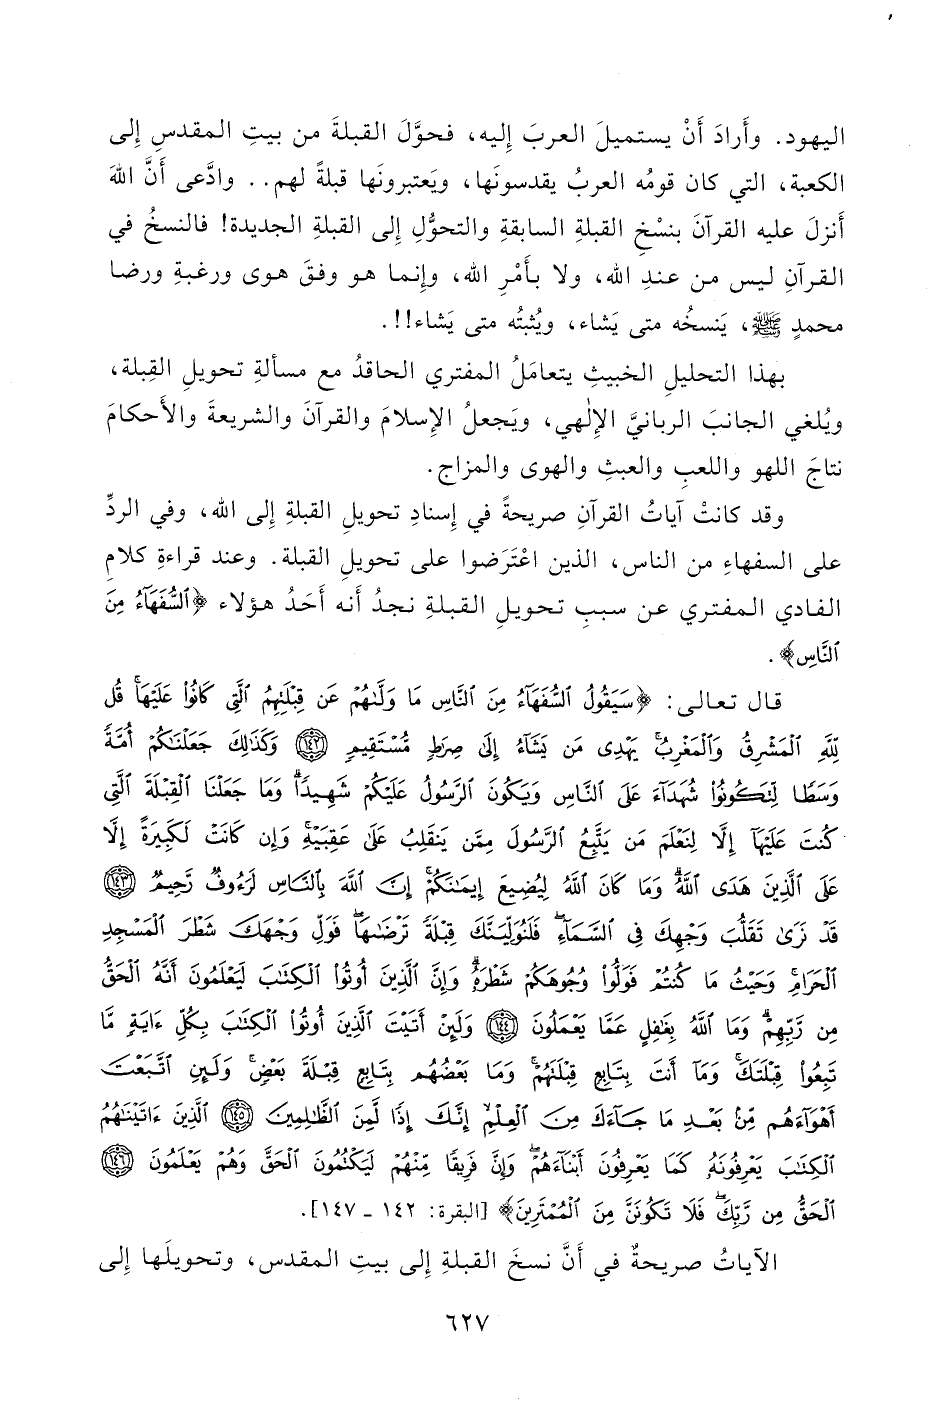 اليهود. وأَرادَ أَنْ يستميلَ العربَ إِليه، فحوَّلَ القبلةَ من بيتِ المقدسِ إِلى
الكعبة، التي كان قومُه العربُ يقدسونَها، ويَعتبرونَها قبلةً لهم.. وادَّعى أَنَّ اللهَ
أَنزلَ عليه القرآنَ بنسْخِ القبلةِ السابقةِ والتحوُّلِ إِلى القبلةِ الجديدة! فالنسخُ في
القرآنِ ليس من عندِ الله، ولا بأَمْرِ الله، وإِنما هو وفقَ هوى ورغبةِ ورضا
محمدٍ ﷺ، يَنسخُه متى يَشاء، ويُثبتُه متى يَشاء!!.
بهذا التحليلِ الخبيثِ يتعامَلُ المفتري الحاقدُ مع مسألةِ تحويلِ القِبلة،
ويُلغي الجانبَ الربانيَّ الإِلٰهي، ويَجعلُ الإِسلامَ والقرآنَ والشريعةَ والأَحكامَ
نتاجَ اللهو واللعبِ والعبثِ والهوى والمزاج.
وقد كانتْ آياتُ القرآنِ صريحةً في إِسنادِ تحويلِ القبلةِ إِلى الله، وفي الردِّ
على السفهاءِ من الناس، الذين اعْتَرَضوا على تحويلِ القبلة. وعند قراءةِ كلامِ
الفادي المفتري عن سببِ تحويلِ القبلةِ نجدُ أَنه أَحَدُ هؤلاء ﴿ٱلسُّفَهَآءُ مِنَ
ٱلنَّاسِ﴾.
قال تعالى: ﴿سَيَقُولُ ٱلسُّفَهَآءُ مِنَ ٱلنَّاسِ مَا وَلَّىٰهُمْ عَن قِبْلَتِهِمُ ٱلَّتِى كَانُوا۟ عَلَيْهَا ۚ قُل
لِّلَّهِ ٱلْمَشْرِقُ وَٱلْمَغْرِبُ ۚ يَهْدِى مَن يَشَآءُ إِلَىٰ صِرَٰطٍ مُّسْتَقِيمٍ ١٤٢ وَكَذَٰلِكَ جَعَلْنَٰكُمْ أُمَّةً
وَسَطًا لِّتَكُونُوا۟ شُهَدَآءَ عَلَى ٱلنَّاسِ وَيَكُونَ ٱلرَّسُولُ عَلَيْكُمْ شَهِيدًا ۗ وَمَا جَعَلْنَا ٱلْقِبْلَةَ ٱلَّتِى
كُنتَ عَلَيْهَآ إِلَّا لِنَعْلَمَ مَن يَتَّبِعُ ٱلرَّسُولَ مِمَّن يَنقَلِبُ عَلَىٰ عَقِبَيْهِ ۚ وَإِن كَانَتْ لَكَبِيرَةً إِلَّا
عَلَى ٱلَّذِينَ هَدَى ٱللَّهُ ۗ وَمَا كَانَ ٱللَّهُ لِيُضِيعَ إِيمَٰنَكُمْ ۚ إِنَّ ٱللَّهَ بِٱلنَّاسِ لَرَءُوفٌ رَّحِيمٌ ١٤٣
قَدْ نَرَىٰ تَقَلُّبَ وَجْهِكَ فِى ٱلسَّمَآءِ ۖ فَلَنُوَلِّيَنَّكَ قِبْلَةً تَرْضَىٰهَا ۚ فَوَلِّ وَجْهَكَ شَطْرَ ٱلْمَسْجِدِ
ٱلْحَرَامِ ۚ وَحَيْثُ مَا كُنتُمْ فَوَلُّوا۟ وُجُوهَكُمْ شَطْرَهُۥ ۗ وَإِنَّ ٱلَّذِينَ أُوتُوا۟ ٱلْكِتَٰبَ لَيَعْلَمُونَ أَنَّهُ ٱلْحَقُّ
مِن رَّبِّهِمْ ۗ وَمَا ٱللَّهُ بِغَٰفِلٍ عَمَّا يَعْمَلُونَ ١٤٤ وَلَئِنْ أَتَيْتَ ٱلَّذِينَ أُوتُوا۟ ٱلْكِتَٰبَ بِكُلِّ ءَايَةٍ مَّا
تَبِعُوا۟ قِبْلَتَكَ ۚ وَمَآ أَنتَ بِتَابِعٍ قِبْلَتَهُمْ ۚ وَمَا بَعْضُهُم بِتَابِعٍ قِبْلَةَ بَعْضٍ ۚ وَلَئِنِ ٱتَّبَعْتَ
أَهْوَآءَهُم مِّنۢ بَعْدِ مَا جَآءَكَ مِنَ ٱلْعِلْمِ ۙ إِنَّكَ إِذًا لَّمِنَ ٱلظَّٰلِمِينَ ١٤٥ ٱلَّذِينَ ءَاتَيْنَٰهُمُ
ٱلْكِتَٰبَ يَعْرِفُونَهُۥ كَمَا يَعْرِفُونَ أَبْنَآءَهُمْ ۖ وَإِنَّ فَرِيقًا مِّنْهُمْ لَيَكْتُمُونَ ٱلْحَقَّ وَهُمْ يَعْلَمُونَ ١٤٦
ٱلْحَقُّ مِن رَّبِّكَ ۖ فَلَا تَكُونَنَّ مِنَ ٱلْمُمْتَرِينَ﴾ [البقرة: ١٤٢ ـ ١٤٧].
الآياتُ صريحةٌ في أَنَّ نسخَ القبلةِ إِلى بيتِ المقدس، وتحويلَها إِلى
٦٢٧